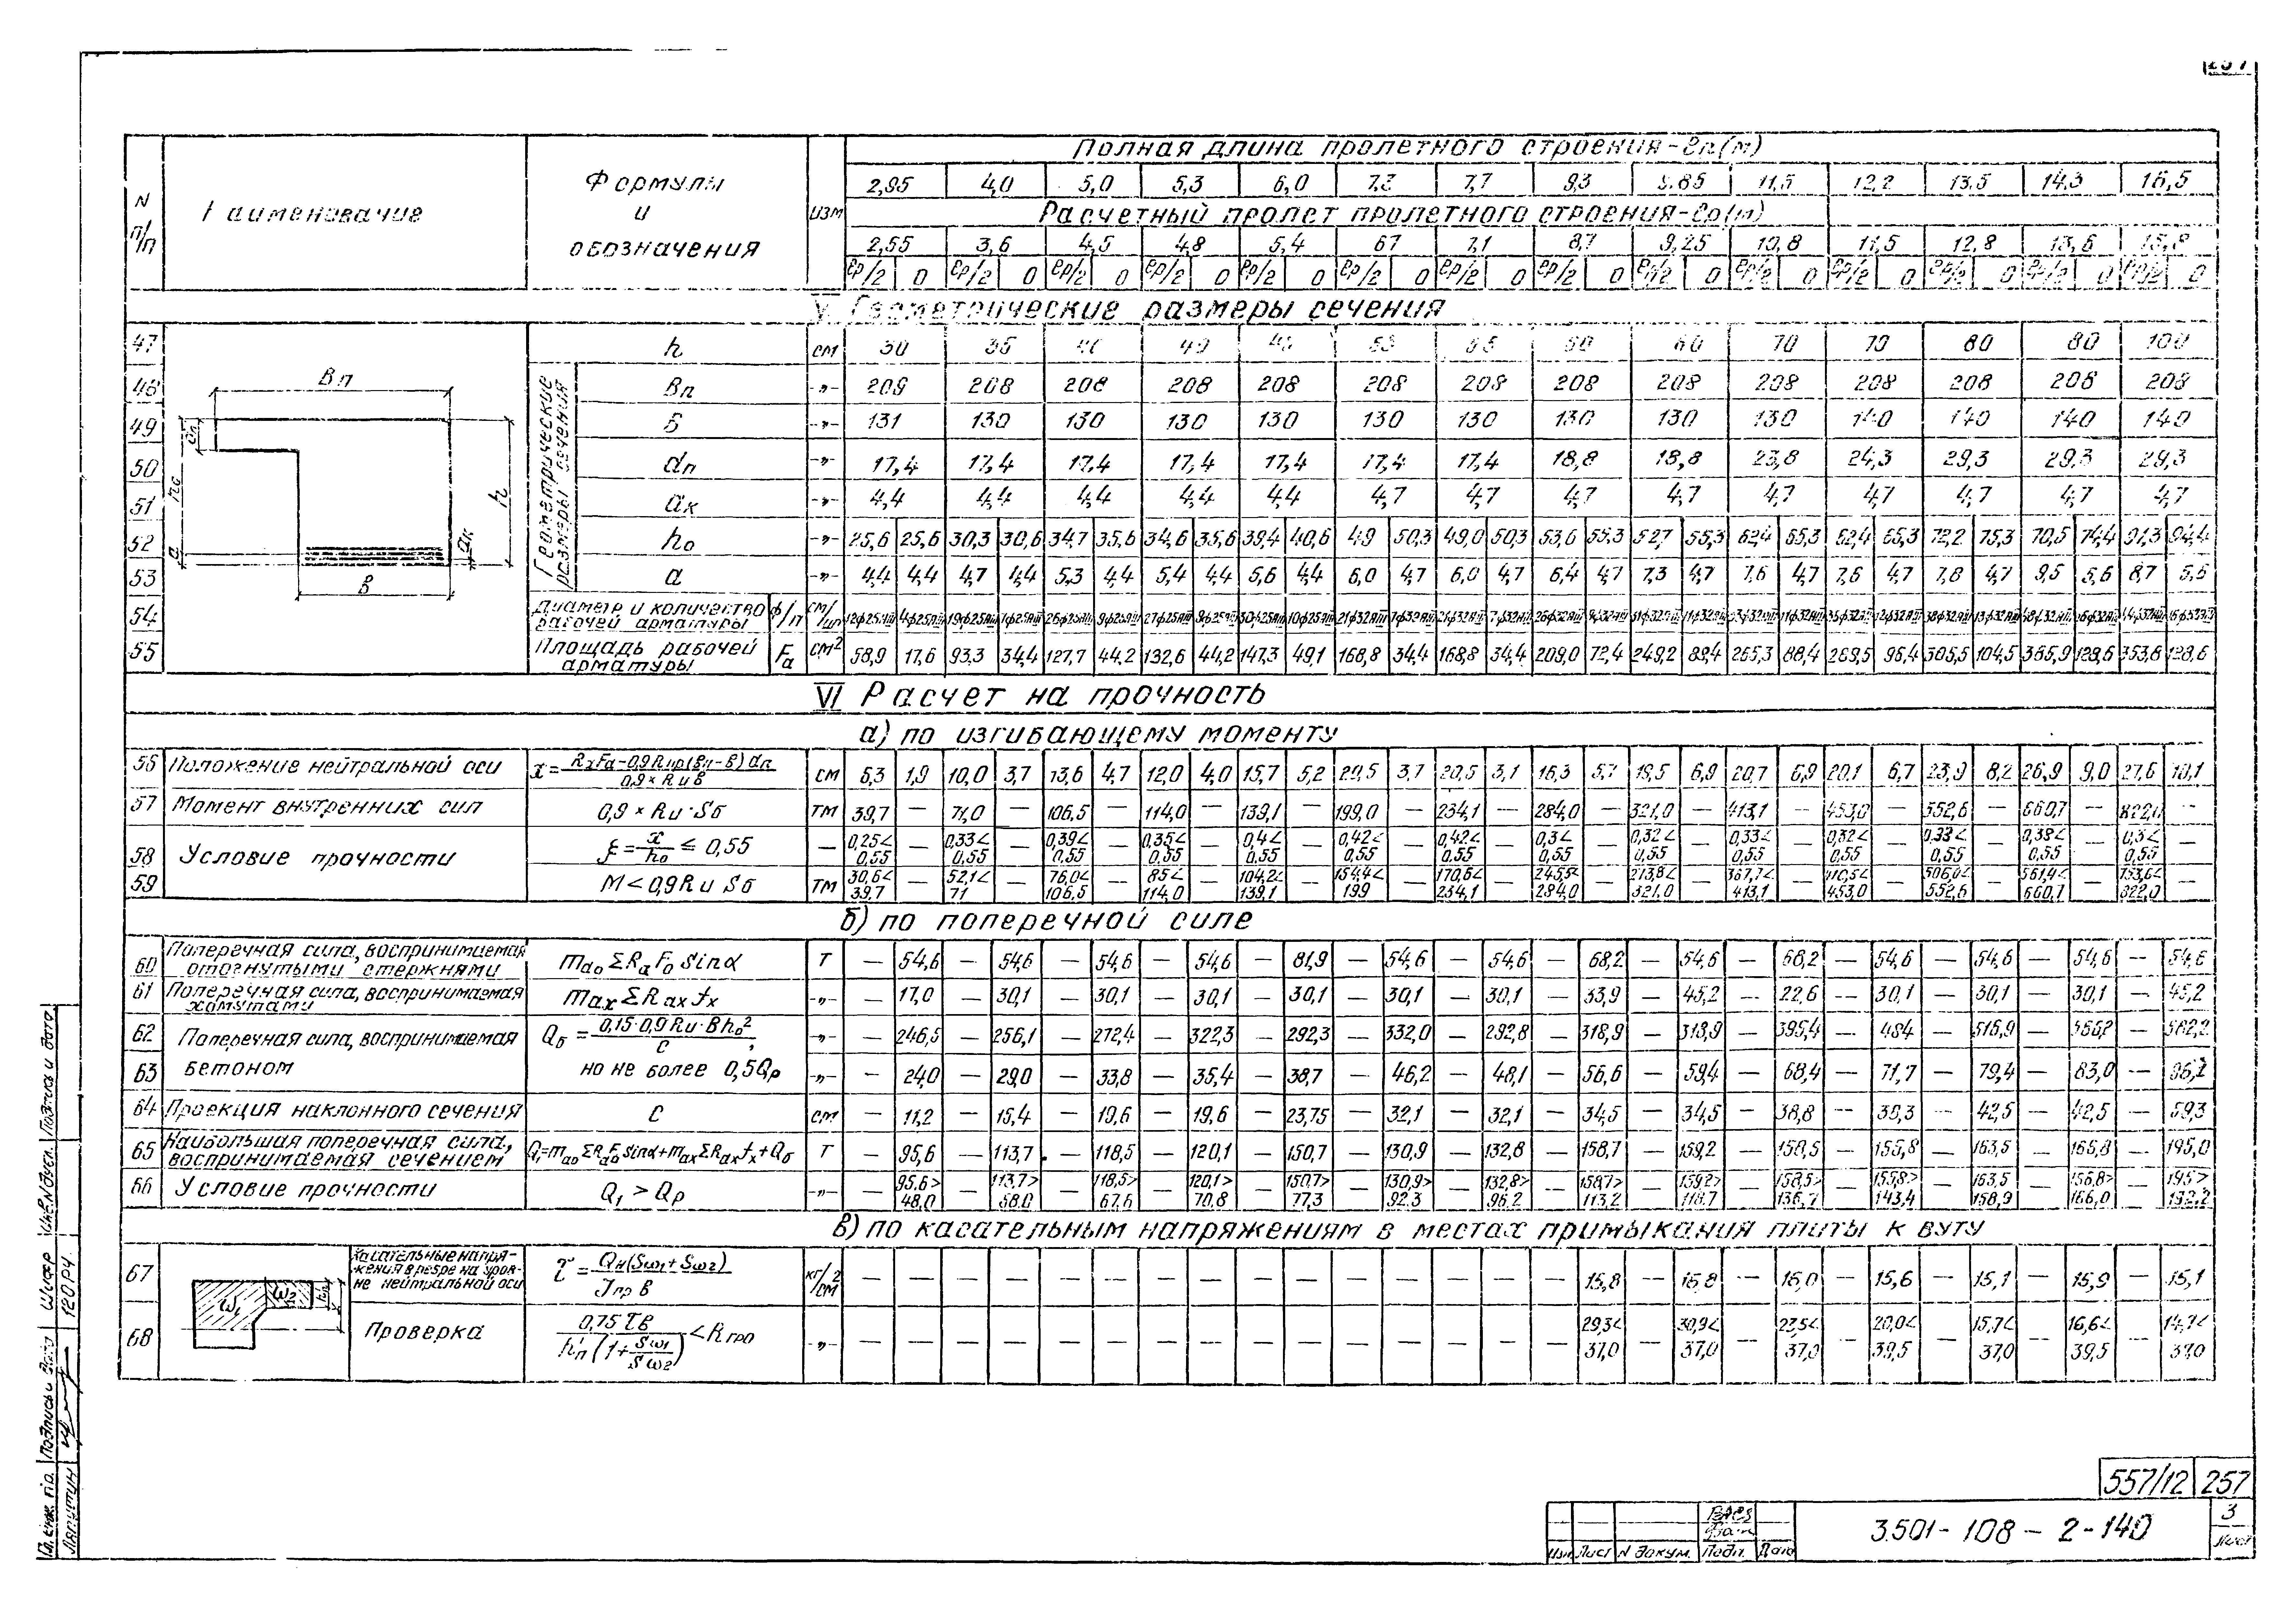 N п/п
Наименование
Формулы и обозначения
изм
Полная длина пролетного строения-ℓп(м)
2,95 4,0 5,0 5,3 6,0 7,3 7,7 9,3 9,85 11,5 12,2 13,5 14,3 16,5
Расчетный пролет пролетного строения-ℓр(м)
2,55 3,6 4,5 4,8 5,4 6,7 7,1 8,7 9,25 10,8 11,5 12,8 13,6 15,8
ℓр/2 0 ℓр/2 0 ℓр/2 0 ℓр/2 0 ℓр/2 0 ℓр/2 0 ℓр/2 0 ℓр/2 0 ℓр/2 0 ℓр/2 0 ℓр/2 0 ℓр/2 0 ℓр/2 0 ℓр/2 0
V Геометрические размеры сечения
Геометрические размеры сечения
47 h см 30 35 40 40 55 60 60 70 70 80 80 100
48 Вп -"- 209 208 208 208 208 208 208 208 208 208 208 208 208 208
49 Б -"- 131 130 130 130 130 130 130 130 130 130 140 140 140 140
50 dп -"- 17,4 17,4 17,4 17,4 17,4 17,4 17,4 18,8 18,8 23,8 24,3 29,3 29,3 29,3
51 ак -"- 4,4 4,4 4,4 4,4 4,4 4,7 4,7 4,7 4,7 4,7 4,7 4,7 4,7 4,7
52 hо -"- 25,6 25,6 30,3 30,6 34,7 35,6 34,6 35,6 39,4 40,6 49 50,3 49,0 50,3 53,6 55,3 52,7 55,3 62,4 65,3 62,4 65,3 72,2 75,3 70,5 74,4 91,3 94,4
53 а -"- 4,4 4,4 4,7 4,4 5,3 4,4 5,4 4,4 5,6 4,4 6,0 4,7 6,0 4,7 6,4 4,7 7,3 4,7 7,6 4,7 7,6 4,7 7,8 4,7 9,5 5,6 8,7 5,6
54 Диаметр и количество рабочей арматуры ф/п см/шт
55 Площадь рабочей арматуры Fа см² 58,9 17,6 93,3 34,4 127,7 44,2 132,6 44,2 147,3 49,1 168,8 34,4 168,8 34,4 209,0 72,4 249,2 88,4 265,3 88,4 269,5 96,4 305,5 104,5 385,9 128,6 353,8 128,6
Вп
dп
hо
h
а
ак
В
VI Расчет на прочность
а) по изгибающему моменту
56 Положение нейтральной оси x=RаFа-0,9Rпр(Вп-в)dп/0,9×Rи в см 6,3 1,9 10,0 3,7 13,6 4,7 12,0 4,0 15,7 5,2 20,5 3,7 20,5 3,1 16,3 5,7 19,5 6,9 20,7 6,9 20,1 6,7 23,9 8,2 26,9 9,0 27,6 10,1
57 Момент внутренних сил 0,9×Rи·Sб тм 39,7 — 71,0 — 106,5 — 114,0 — 139,1 — 199,0 — 234,1 — 284,0 — 321,0 — 413,1 — 453,0 — 552,6 — 660,7 — 822,0 —
58 Условие прочности ξ=x/hо ≤ 0,55 — 0,25<0,55 — 0,33<0,55 — 0,39<0,55 — 0,35<0,55 — 0,4<0,55 — 0,42<0,55 — 0,42<0,55 — 0,3<0,55 — 0,32<0,55 — 0,33<0,55 — 0,32<0,55 — 0,33<0,55 — 0,38<0,55 — 0,3<0,55 —
59 M<0,9Rи Sб тм 30,6<39,7 — 52,1<71 — 76,0<106,5 — 85<114,0 — 104,2<139,1 — 154,4<199 — 170,6<234,1 — 245,5<284,0 — 213,8<321,0 — 367,7<413,1 — 410,5<453,0 — 506,0<552,6 — 561,4<660,7 — 753,6<822,0 —
б) по поперечной силе
60 Поперечная сила, воспринимаемая отогнутыми стержнями mао ΣRа Fо sinα т — 54,6 — 54,6 — 54,6 — 54,6 — 81,9 — 54,6 — 54,6 — 68,2 — 54,6 — 68,2 — 54,6 — 54,6 — 54,6 — 54,6
61 Поперечная сила, воспринимаемая хомутами mах ΣRах fх -"- — 17,0 — 30,1 — 30,1 — 30,1 — 30,1 — 30,1 — 30,1 — 33,9 — 45,2 — 22,6 — 30,1 — 30,1 — 30,1 — 45,2
62 Поперечная сила, воспринимаемая Qб=0,15·0,9Rи·Вhо²/С, -"- — 246,5 — 256,1 — 272,4 — 322,3 — 292,3 — 332,0 — 292,8 — 318,9 — 318,9 — 395,4 — 484 — 516,9
63 бетоном но не более 0,5Qр -"- — 24,0 — 29,0 — 33,8 — 35,4 — 38,7 — 46,2 — 48,1 — 56,6 — 59,4 — 68,4 — 71,7 — 79,4 — 83,0 — 96,1
64 Проекция наклонного сечения С см — 11,2 — 15,4 — 19,6 — 19,6 — 23,75 — 32,1 — 32,1 — 34,5 — 34,5 — 38,8 — 39,3 — 42,5 — 42,5 — 59,3
65 Наибольшая поперечная сила, воспринимаемая сечением Q₁=mао ΣRаFо sinα+mах ΣRах fх+Qб т — 95,6 — 113,7 — 118,5 — 120,1 — 150,7 — 130,9 — 132,8 — 158,7 — 159,2 — 158,5 — 155,8 — 163,5 — 165,8 — 195,0
66 Условие прочности Q₁ > Qр -"- — 95,6>48,0 — 113,7>58,0 — 118,5>67,6 — 120,1>70,8 — 150,7>77,3 — 130,9>92,3 — 132,8>96,2 — 158,7>113,2 — 159,2>118,7 — 158,5>136,7 — 155,8>143,4 — 163,5 158,9 — 166,0 — 195>192,2
в) по касательным напряжениям в местах примыкания плиты к вуту
67 Касательные напряжения в ребре на уровне нейтральной оси τ=Qн(Sω1+Sω2)/Jпр в кг/см² — — — — — — — — — — — — — — — 15,8 — 16,8 — 16,0 — 15,6 — 15,1 — 15,9 — 15,1
68 Проверка 0,75τв/h'п(1+Sω1/Sω2) <Rгро -"- — — — — — — — — — — — — — — — 29,3<37,0 — 30,9<37,0 — 23,5<37,0 — 20,0<39,5 — 15,7<37,0 — 16,6<39,5 — 14,7<37,0
ω₁ ω₂ h'п
557/12 257
3.501-108-2-140
3
Лист
Изм Лист N докум. Подп. Дата
Инв.N дубл. Подпись и дата
Шифр
120РЧ
Подпись и дата
Ляпутин